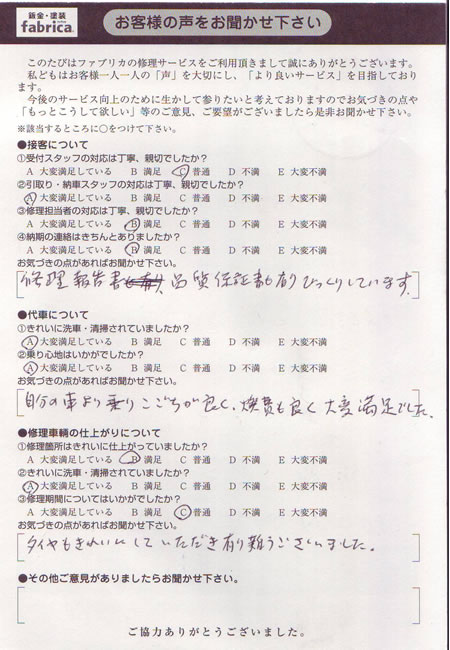 鈑金・塗装
fabrica
お客様の声をお聞かせ下さい
このたびはファブリカの修理サービスをご利用頂きまして誠にありがとうございます。
私どもはお客様一人一人の「声」を大切にし、「より良いサービス」を目指しており
ます。
今後のサービス向上のために生かして参りたいと考えておりますのでお気づきの点や
「もっとこうして欲しい」等のご意見、ご要望がございましたら是非お聞かせ下さい。
※該当するところに○をつけて下さい。
●接客について
①受付スタッフの対応は丁寧、親切でしたか?
A 大変満足している B 満足 C 普通 D 不満 E 大変不満
②引取り・納車スタッフの対応は丁寧、親切でしたか?
A 大変満足している B 満足 C 普通 D 不満 E 大変不満
③修理担当者の対応は丁寧、親切でしたか?
A 大変満足している B 満足 C 普通 D 不満 E 大変不満
④納期の連絡はきちんとありましたか?
A 大変満足している B 満足 C 普通 D 不満 E 大変不満
お気づきの点があればお聞かせ下さい。
修理報告書 品質保証書も有りびっくりしています。
●代車について
①きれいに洗車・清掃されていましたか?
A 大変満足している B 満足 C 普通 D 不満 E 大変不満
②乗り心地はいかがでしたか?
A 大変満足している B 満足 C 普通 D 不満 E 大変不満
お気づきの点があればお聞かせ下さい。
自分の車より乗りごこちが良く、燃費も良く大変満足でした。
●修理車輌の仕上がりについて
①修理箇所はきれいに仕上がっていましたか?
A 大変満足している B 満足 C 普通 D 不満 E 大変不満
②きれいに洗車・清掃されていましたか?
A 大変満足している B 満足 C 普通 D 不満 E 大変不満
③修理期間についてはいかがでしたか?
A 大変満足している B 満足 C 普通 D 不満 E 大変不満
お気づきの点があればお聞かせ下さい。
タイヤもきれいにしていただき有り難うございました。
●その他ご意見がありましたらお聞かせ下さい。
ご協力ありがとうございました。